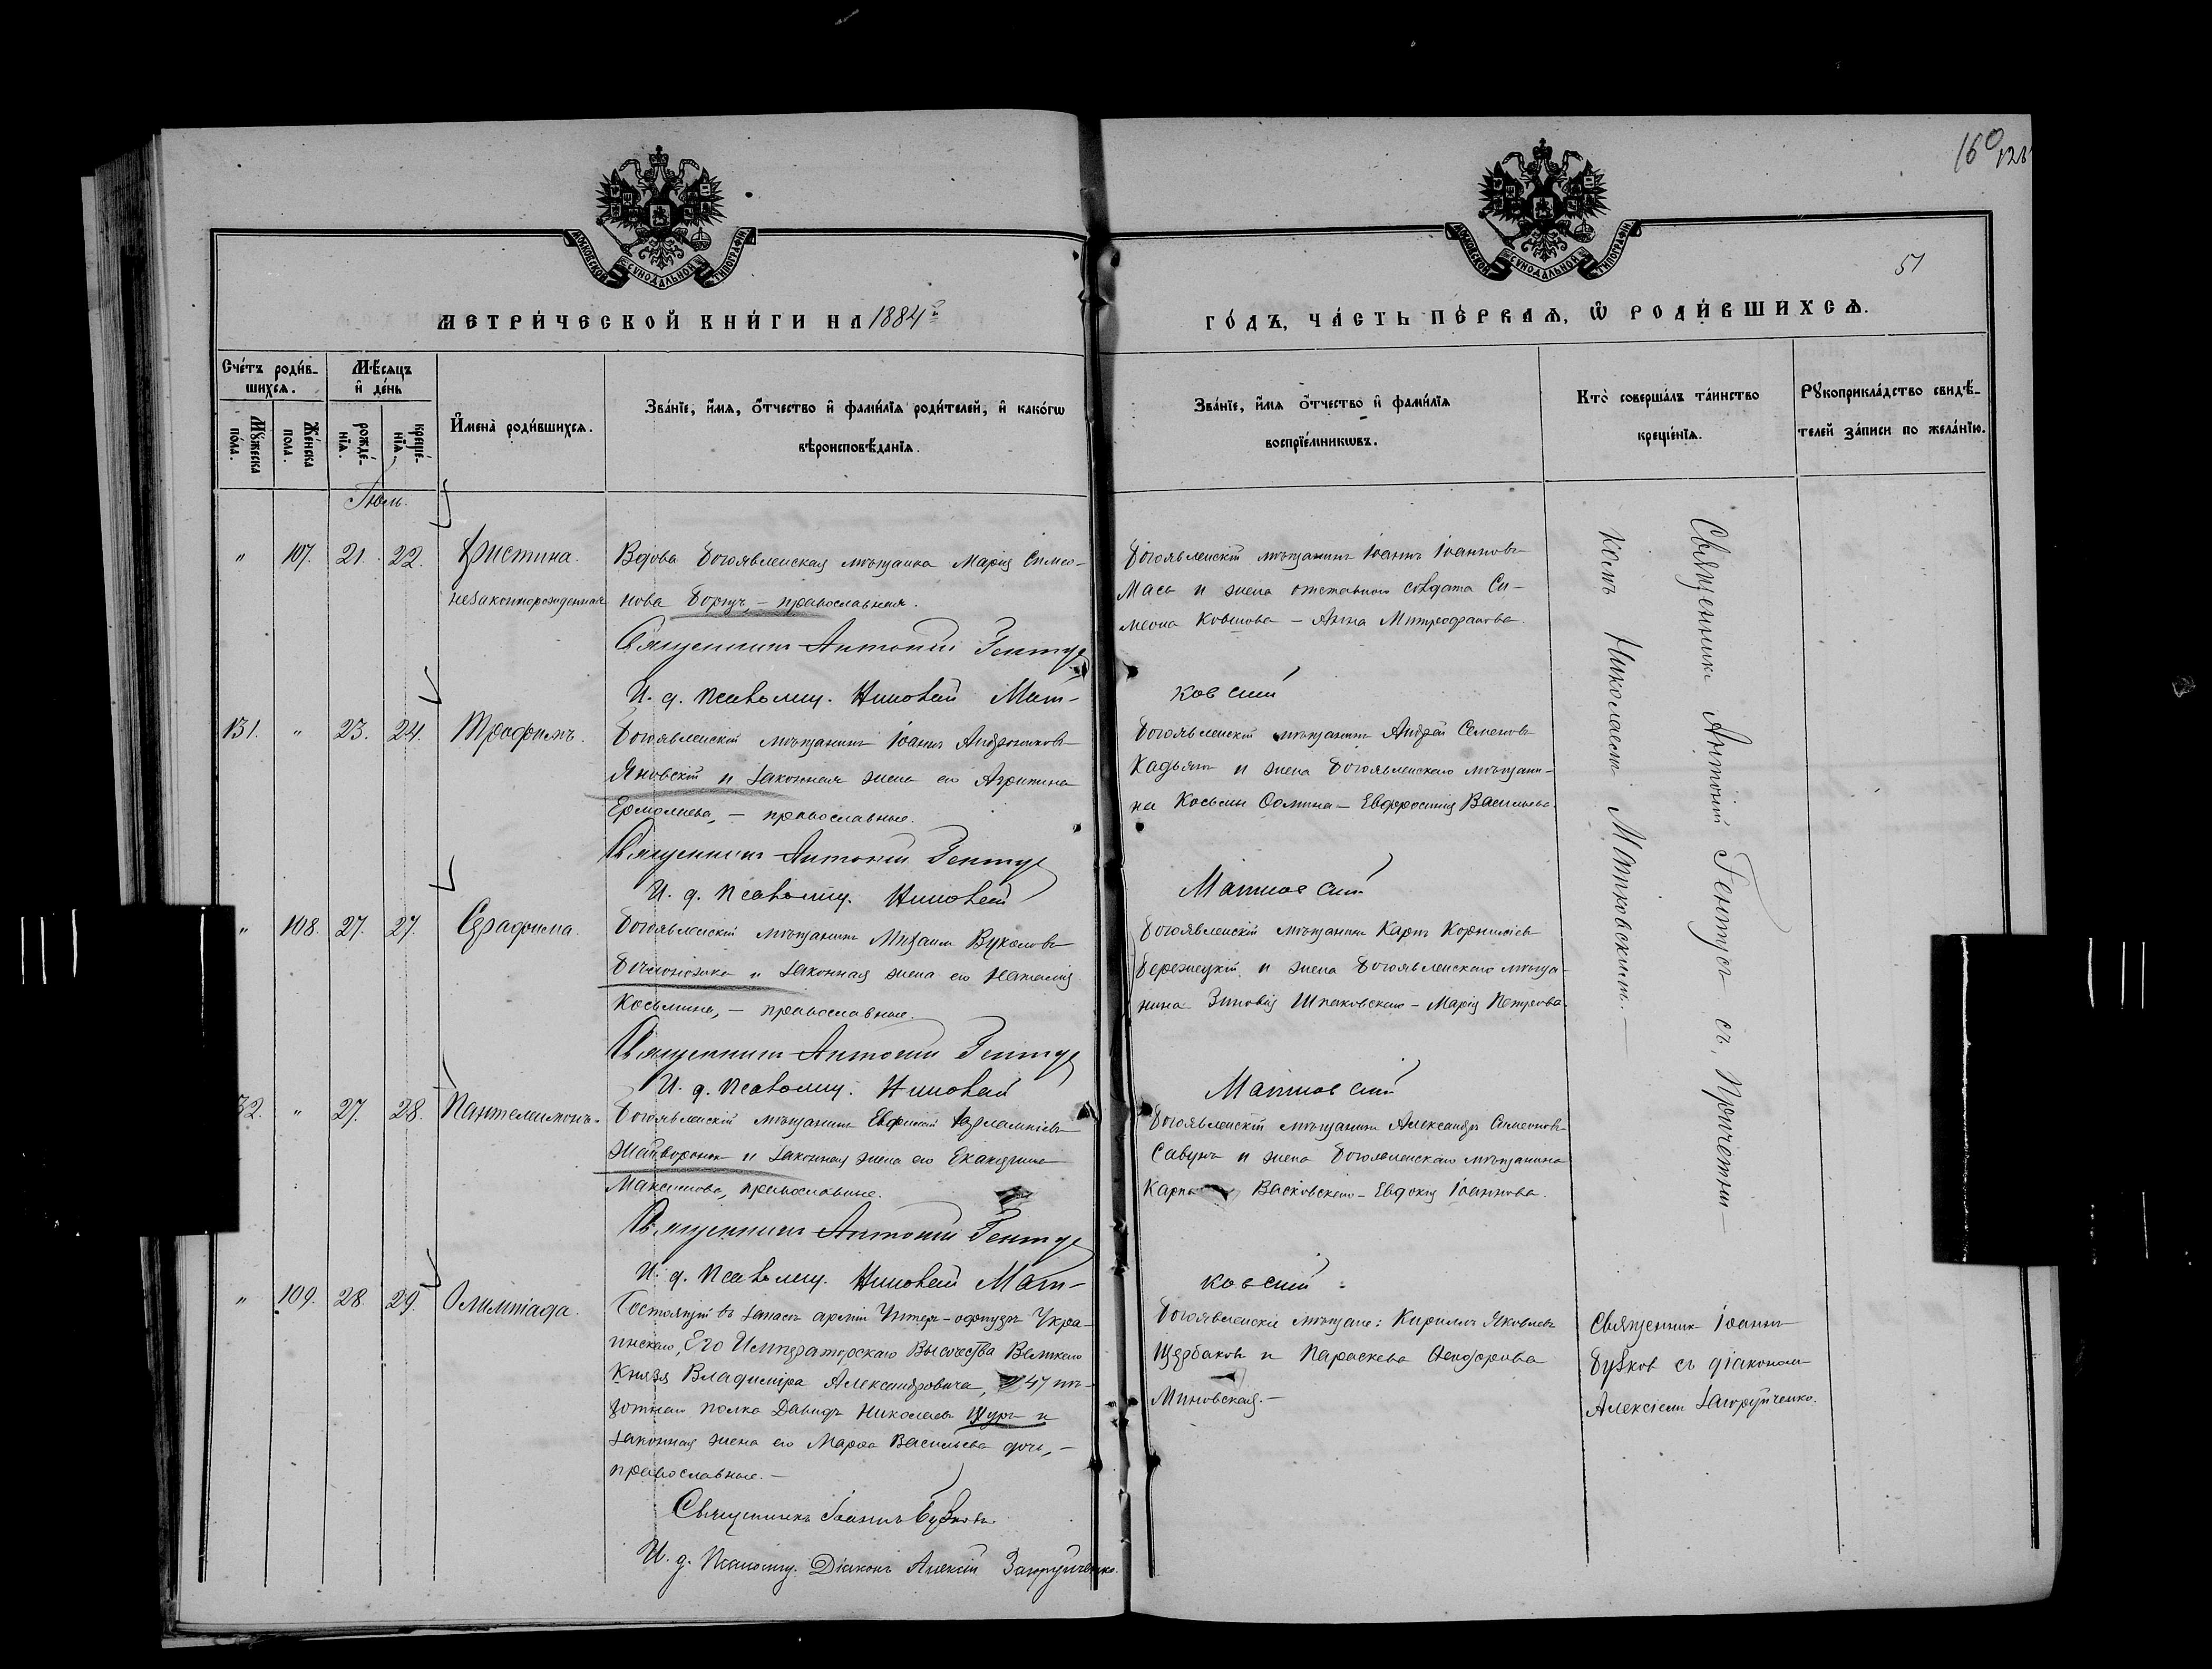 160
128
51
МОСКОВСКОЙ СУНОДАЛЬНОЙ ТИПОГРАФІИ
МОСКОВСКОЙ СУНОДАЛЬНОЙ ТИПОГРАФІИ
МЕТРИ́ЧЕСКОЙ КНИ́ГИ НА 1884й
ГО́ДЪ, ЧА́СТЬ ПЕ́РВАѦ, Ѡ҆ РОДИ́ВШИХСѦ.
Сче́тъ роди́в-
шихсѧ.
Мꙋ́жеска по́ла.
Же́нска пола.
Мѣ́сѧцъ
и҆ де́нь
рожде́-нїѧ.
креще́-нїѧ.
И҆мена̀ роди́вшихсѧ.
Зва́нїе, и҆́мѧ, о҆́тчество и҆ фами́лїѧ роди́телей, и҆ како́гѡ
вѣроисповѣ́данїѧ.
Зва́нїе, и҆́мѧ о҆́тчество и҆ фами́лїѧ
воспрїе́мникѡвъ.
Кто̀ соверша́лъ та́инство
креще́нїѧ.
Рꙋкоприкла́дство свидѣ́-
телей за́писи по жела́нїю.
Іюль.
" 107. 21. 22. Христина.
незаконнорожденная
Вдова Богоявленская мѣщанка Марія Симео-
нова Борщъ, – православная.
Священникъ Антоній Гентуе
И. д. псаломщ. Николай Мат-
ковскій
Богоявленскій мѣщанинъ Іоаннъ Іоанновъ
Мась и жена отставного солдата Си-
меона Ковшова – Анна Митрофанова.
131. " 23. 24. Трофимъ.
Богоявленскій мѣщанинъ Іоаннъ Андрониковъ
Яновскій и законная жена его Агрипина
Ермолаева, – православные.
Священникъ Антоній Гентуе
И. д. псаломщ. Николай
Матковскій
Богоявленскій мѣщанинъ Андрей Семеновъ
Кадьянъ и жена Богоявленскаго мѣщани-
на Косьмы Ѳомина – Евфросинія Васильева.
" 108. 27. 27. Серафима.
Богоявленскій мѣщанинъ Михаилъ Вуколовъ
и законная жена его Наталія
Косьмина, – православные.
Священникъ Антоній Гентуе
И. д. псаломщ. Николай
Матковскій
Богоявленскій мѣщанинъ Карпъ Корниліевъ
Бережецкій и жена Богоявленскаго мѣща-
нина Зиновія Шпаковскаго – Марія Петрова.
32. " 27. 28. Пантелеимонъ.
Богоявленскій мѣщанинъ Евфимій Харлампіевъ
Жайворонокъ и законная жена его Екатерина
Максимова, православные.
Священникъ Антоній Гентуе
И. д. псаломщ. Николай Мат-
ковскій
Богоявленскій мѣщанинъ Александръ Симеоновъ
Савунъ и жена Богоявленскаго мѣщанина
Карпа Васковскаго – Евдокія Іоаннова.
Священникъ Антоній Гентуе съ, Причетни-
комъ Николаемъ Матковскимъ. –
" 109. 28. 29. Олимпіада.
Состоящій въ запасѣ арміи Унтеръ-офицеръ Укра-
инскаго, Его Императорскаго Высочества Великаго
Князя Владиміра Александровича, 47 пѣ-
хотнаго полка Давидъ Николаевъ Щуръ и
законная жена его Марѳа Васильева дочь, –
православные. –
Священникъ Іоаннъ Бузковъ
И. д. Псаломщ. Діаконъ Алексій Загоруйченко.
Богоявленскіе мѣщане: Кириллъ Яковлевъ
Щербаковъ и Параскева Ѳеодорова
Миновская. –
Священникъ Іоаннъ
Бузков съ діакономъ
Алексіемъ Загоруйченко.